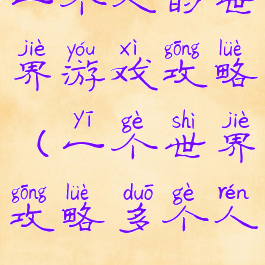 一个人的世
jiè yóu xì gōng lüè
界游戏攻略
yī gè shì jiè
（一个世界
gōng lüè duō gè rén
攻略多个人